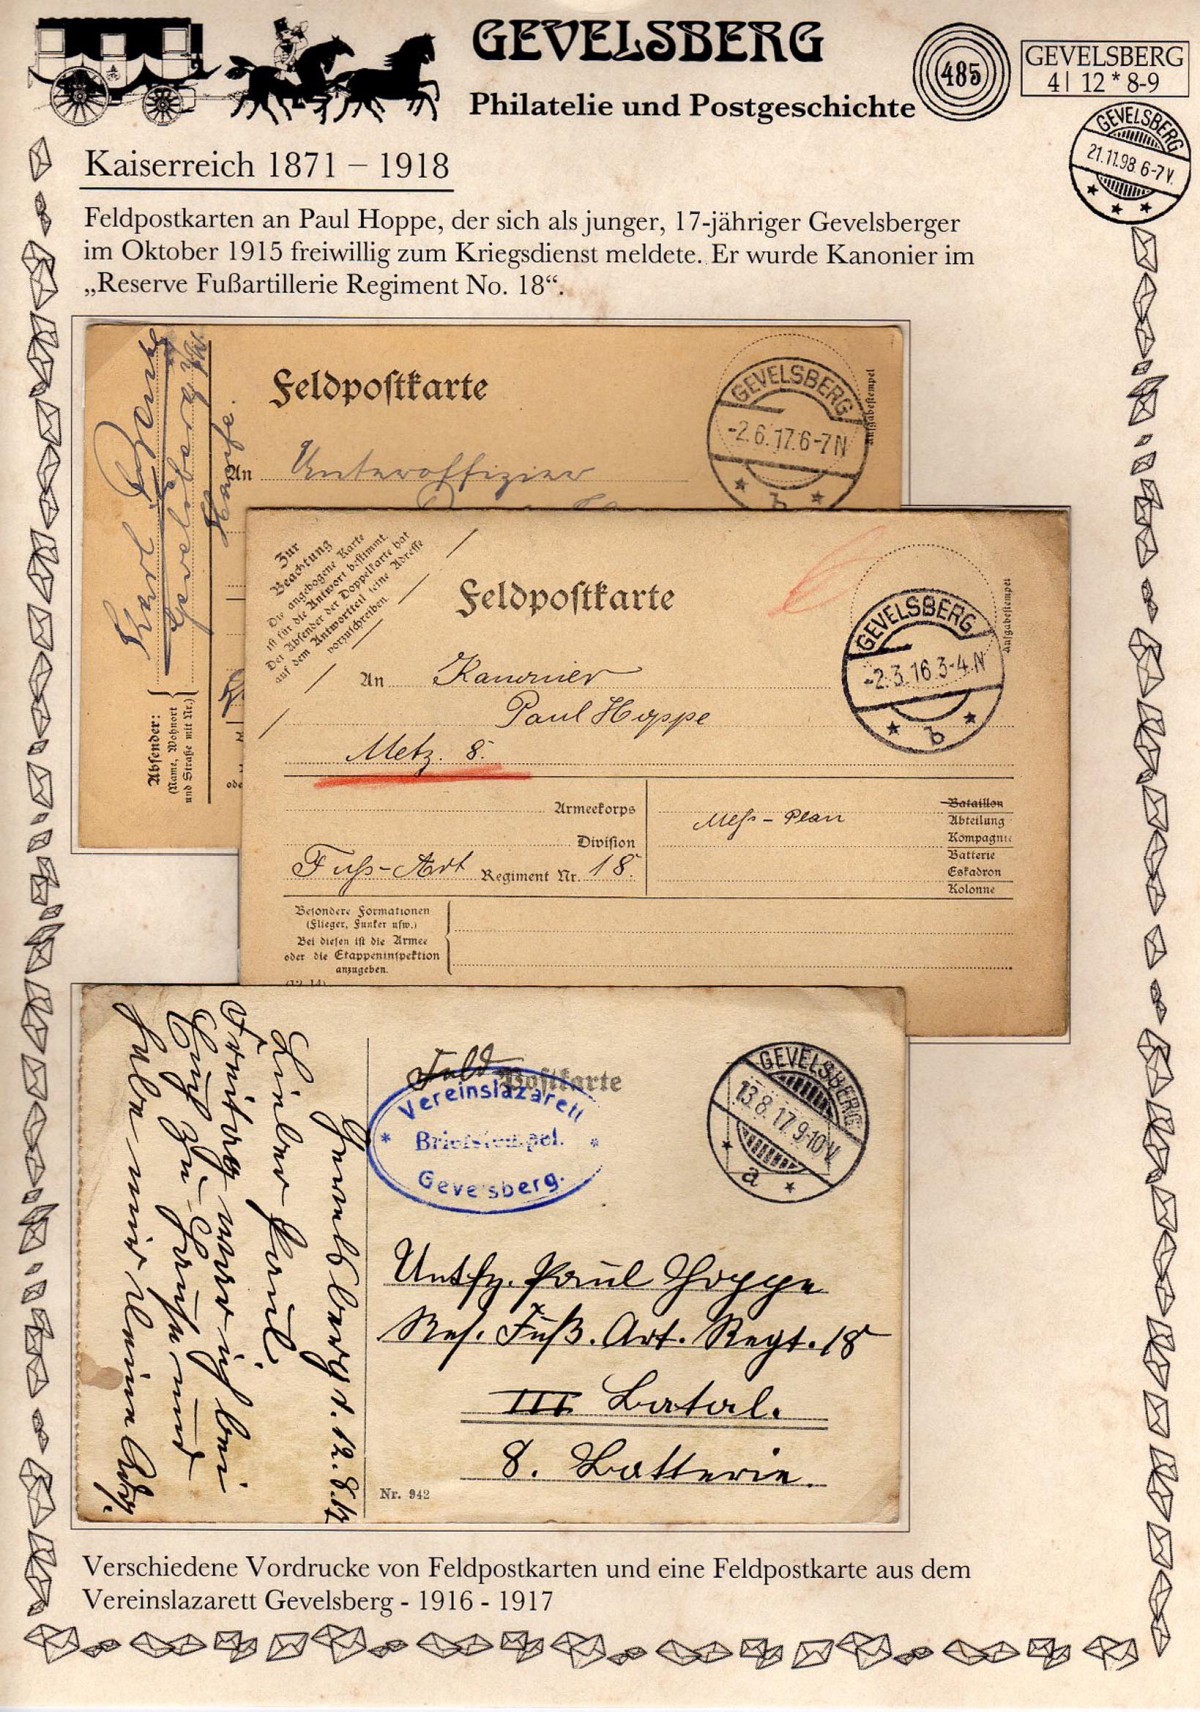 GEVELSBERG
Philatelie und Postgeschichte
485
GEVELSBERG
4| 12 * 8-9
GEVELSBERG
21.11.98 6-7V.
Kaiserreich 1871 – 1918
Feldpostkarten an Paul Hoppe, der sich als junger, 17-jähriger Gevelsberger
im Oktober 1915 freiwillig zum Kriegsdienst meldete. Er wurde Kanonier im
„Reserve Fußartillerie Regiment No. 18“.
Feldpostkarte
GEVELSBERG
-2.6.17.6-7N
b
Aufgabestempel
An Unteroffizier
Karl
Gevelsberg
Absender:
(Name, Wohnort
und Straße mit Nr.)
Zur
Beachtung
Die angebogene Karte
ist für die Antwort bestimmt.
Der Absender der Doppelkarte hat
auf dem Antwortteil seine Adresse
vorzuschreiben.
Feldpostkarte
GEVELSBERG
-2.3.16.3-4.N
b
Aufgabestempel
An Kanonier
Paul Hoppe
Metz. 8.
Armeekorps
Division
Fuß-Art Regiment Nr. 18.
Meß-Plan
Bataillon
Abteilung
Kompagnie
Batterie
Eskadron
Kolonne
Besondere Formationen
(Flieger, Funker usw.)
Bei diesen ist die Armee
oder die Etappeninspektion
anzugeben.
(12.14)
Feld Postkarte
Vereinslazarett
Briefstempel.
Gevelsberg.
GEVELSBERG
13.8.17.9-10V.
a
Gevelsberg, d. 12.8.17
Lieber Paul
Freitag war ich bei
Euch zu Hause und
habe mir Deine Adr.
Untfz. Paul Hoppe
Res. Fuß. Art. Regt. 18
III Batal.
8. Batterie.
Nr. 942
Verschiedene Vordrucke von Feldpostkarten und eine Feldpostkarte aus dem
Vereinslazarett Gevelsberg - 1916 - 1917